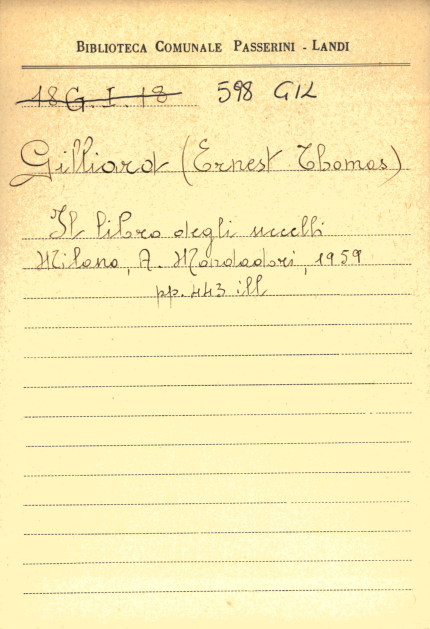 BIBLIOTECA COMUNALE PASSERINI - LANDI
18 G. I. 18 598 GIL
Gilliard (Ernest Thomas)
Il libro degli uccelli
Milano, A. Mondadori, 1959
pp. 443 ill